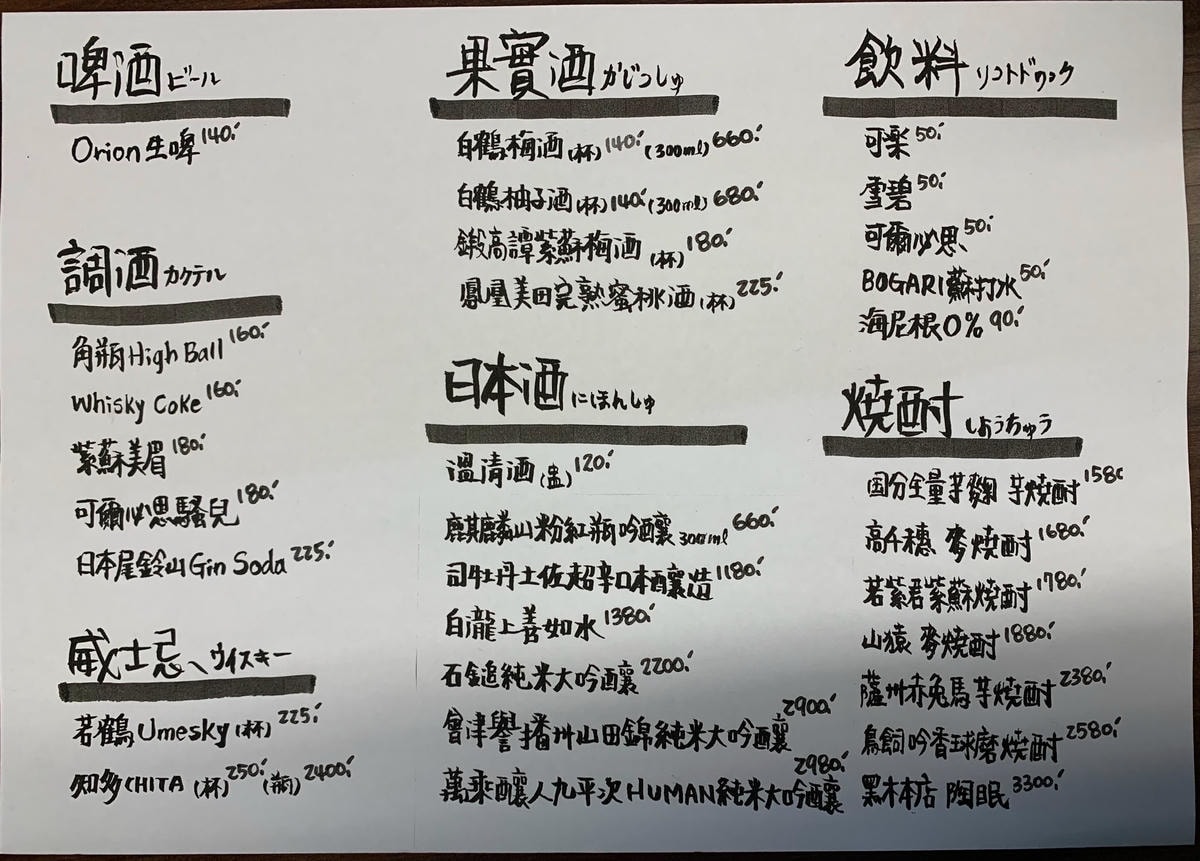 啤酒 ビール
Orion生啤 140.-
調酒 カクテル
角瓶High Ball 160.-
Whisky Coke 160.-
紫蘇美眉 180.-
可爾必思騷兒 180.-
日本尾鈴山Gin Soda 225.-
威士忌 ウイスキー
若鶴Umesky(杯) 225.-
知多CHITA (杯) 250.- (瓶) 2400.-
果實酒 かじつしゅ
白鶴梅酒(杯) 140.- (300ml) 660.-
白鶴柚子酒(杯) 140.- (300ml) 680.-
鍛高譚紫蘇梅酒(杯) 180.-
鳳凰美田完熟蜜桃酒(杯) 225.-
日本酒 にほんしゅ
溫清酒(盅) 120.-
麒麟山粉紅瓶吟釀300ml 660.-
司牡丹土佐超辛口本釀造 1180.-
白瀧上善如水 1380.-
石鎚純米大吟釀 2200.-
會津譽播州山田錦純米大吟釀 2900.-
萬乘釀人九平次HUMAN純米大吟釀 2980.-
飲料
可樂 50.-
雪碧 50.-
可爾必思 50.-
BOGARI蘇打水 50.-
海尼根0% 90.-
燒酎 しょうちゅう
国分全量芋麴 芋燒酎 158
高千穗 麥燒酎 1680.-
若紫君紫蘇燒酎 1780.-
山猿 麥燒酎 1880.-
薩州赤兔馬芋燒酎 2380.-
鳥飼吟香球磨燒酎 2580.-
黑木本店 陶眠 3300.-